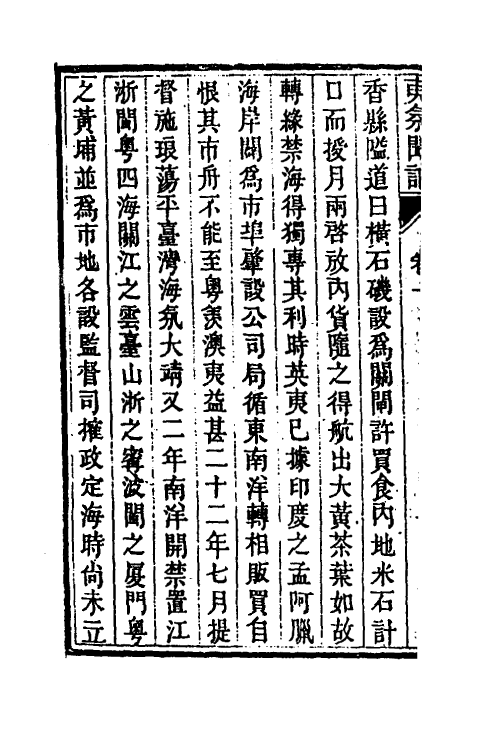 香縣隘道曰橫石磯設爲關閘許買食內地米石計
口而授月兩啓放內貨隨之得航出大黃茶葉如故
轉緣禁海得獨專其利時英夷已據印度之孟阿臘
海岸闢爲市埠肇設公司局循東南洋轉相販買自
恨其市舟不能至粵羨澳夷益甚二十二年七月提
督施琅蕩平臺灣海氛大靖又二年南洋開禁置江
浙閩粵四海關江之雲臺山浙之寧波閩之厦門粵
之黃埔並爲市地各設監督司搉政定海時尙未立